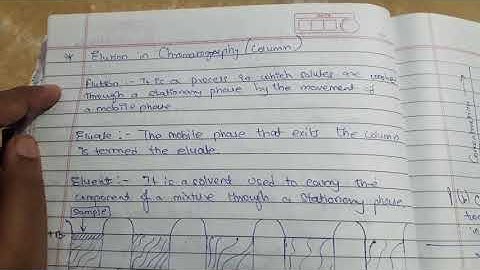 * Elution in Chromatography (Column)
Elution :- It is a process in which solutes are
through a stationary phase by the movement of
a mobile phase
Eluate :- The mobile phase that exits the column
is termed the eluate.
Eluent :- It is a solvent used to carry the
component of a mixture through a stationary phase
Sample
A+B
Concentration